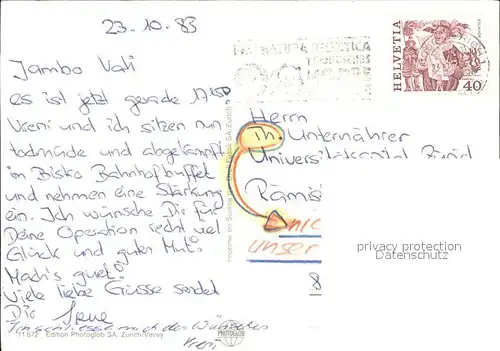 23.-10.-83
Jambo Vati
Es ist jetzt gerade 17.50
Vreni und ich sitzen nun
todmüde und abgekämpft
im Bisko Bahnhofbuffet
und nehmen eine Stärkung
ein. Ich wünsche Dir für
Deine Operation recht viel
Glück und guten Mut.
Mach's guet!
Viele liebe Grüsse sendet
Dir Irene
schliesst mich den Wünschen
Vreni
11672 Edition Photoglob SA, Zürich/Vevey
PHOTOGLOB
Imprimé en Suisse
SA, Zürich
HELVETICA
HELVETIA
40
Herrn
Th. Unternährer
Universitätsspital Zürich
Rämis
unser
8
privacy protection
Datenschutz